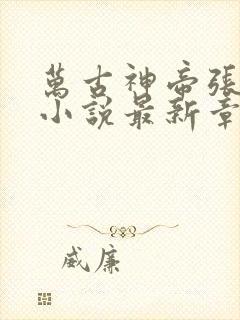 萬古神帝張
小說最新章
威廉